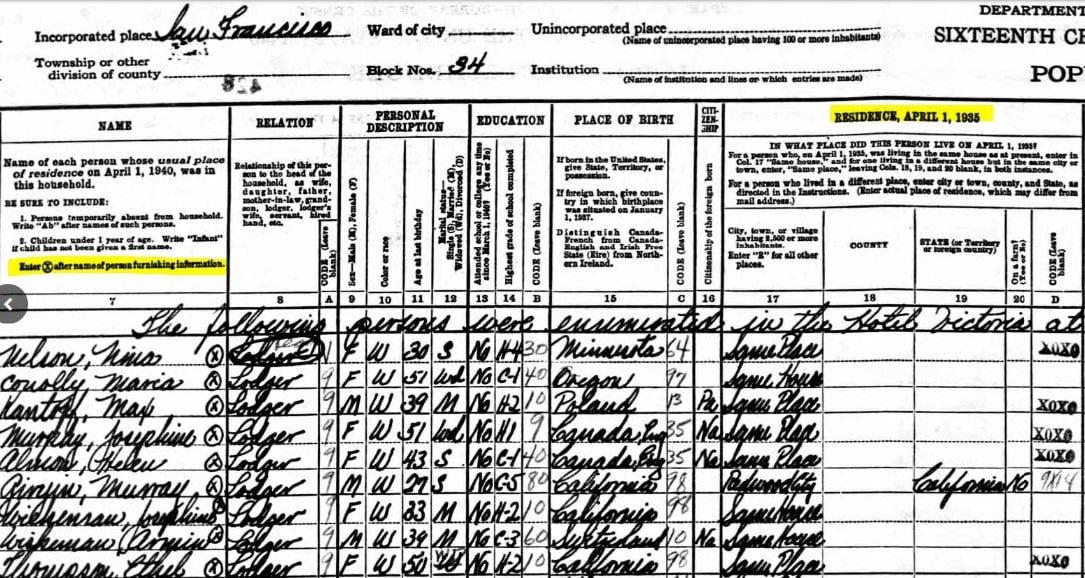 DEPARTMENT
Incorporated place San Francisco Ward of city Unincorporated place
(Name of unincorporated place having 100 or more inhabitants)
SIXTEENTH CE
Township or other
division of county Block Nos. 34 Institution
(Name of institution and lines on which entries are made)
POP
NAME
Name of each person whose usual place
of residence on April 1, 1940, was in
this household.
BE SURE TO INCLUDE:
1. Persons temporarily absent from household.
Write "Ab" after names of such persons.
2. Children under 1 year of age. Write "Infant"
if child has not been given a first name.
Enter Ⓧ after name of person furnishing information.
7
RELATION
Relationship of this per-
son to the head of the
household, as wife,
daughter, father,
mother-in-law, grand-
son, lodger, lodger's
wife, servant, hired
hand, etc.
8
CODE (Leave blank)
A
PERSONAL
DESCRIPTION
Sex—Male (M), Female (F)
9
Color or race
10
Age at last birthday
11
Marital status—
Single (S), Married (M),
Widowed (Wd), Divorced (D)
12
EDUCATION
Attended school or college any time
since March 1, 1940? (Yes or No)
13
Highest grade of school completed
14
CODE (Leave blank)
B
PLACE OF BIRTH
If born in the United States,
give State, Territory, or
possession.
If foreign born, give coun-
try in which birthplace
was situated on January
1, 1937.
Distinguish Canada-
French from Canada-
English and Irish Free
State (Eire) from North-
ern Ireland.
15
CODE (Leave blank)
C
CITI-
ZEN-
SHIP
Citizenship of the foreign born
16
RESIDENCE, APRIL 1, 1935
IN WHAT PLACE DID THIS PERSON LIVE ON APRIL 1, 1935?
For a person who, on April 1, 1935, was living in the same house as at present, enter in
Col. 17 "Same house," and for one living in a different house but in the same city or
town, enter, "Same place," leaving Cols. 18, 19, and 20 blank, in both instances.
For a person who lived in a different place, enter city or town, county, and State, as
directed in the Instructions. (Enter actual place of residence, which may differ from
mail address.)
City, town, or village
having 2,500 or more
inhabitants.
Enter "R" for all other
places.
17
COUNTY
18
STATE (or Territory
or foreign country)
19
On a farm?
(Yes or No)
20
CODE (Leave blank)
D
The following persons were enumerated in the Hotel Victoria at
Nelson, Nina Ⓧ F W 30 S No H-4 30 Minnesota 64 Same Place XOXO
Conolly, Maria Ⓧ Lodger 9 F W 51 Wd No C-1 40 Oregon 97 Same House
Max Ⓧ Lodger 9 M W 39 M No H-2 10 Poland 13 Pa Same Place XOXO
Murray, Josephine Ⓧ Lodger 9 F W 51 Wd No H1 9 Canada, Eng 35 Na Same Place XOXO
Helen Ⓧ Lodger 9 F W 43 S No C-1 40 Canada, Eng 35 Na Same Place XOXO
Murray Ⓧ Lodger 9 M W 27 S No C-5 80 California 98 Redwood City California No
Josephine Lodger 9 F W 33 M No H-2 10 California 98 Same House
Ⓧ Lodger 9 M W 39 M No C-3 60 Switzerland 10 Na Same House
Thompson, Ethel Ⓧ Lodger 9 F W 50 No H-2 10 California 98 Same Place XOXO